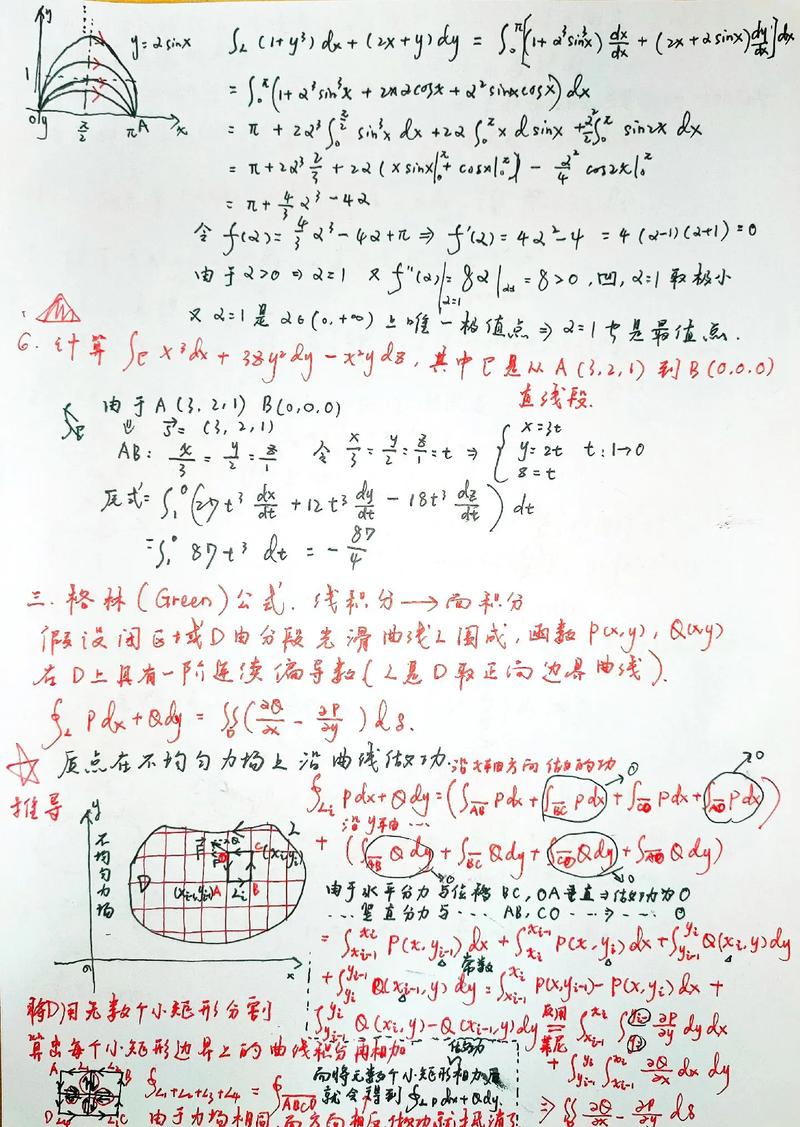 y
y=αsinx
1
0
π/2
πA
x
∫_L (1+y³)dx+(2x+y)dy = ∫₀^π[(1+α³sin³x) dx/dx + (2x+αsinx) dy/dx]dx
= ∫₀^π(1+α³sin³x + 2xαcosx + α²sinxcosx)dx
= π + 2α³∫₀^{π/2} sin³x dx + 2α∫₀^π x d sinx + α²/2 ∫₀^π sin2x dx
= π + 2α³ 2/3 + 2α(x sinx|₀^π + cosx|₀^π) - α²/4 cos2x|₀^π
= π + 4/3 α³ - 4α
令 f(α) = 4/3 α³ - 4α + π ⇒ f'(α) = 4α² - 4 = 4(α-1)(α+1) = 0
由于 α>0 ⇒ α=1 又 f''(α)|_{α=1} = 8α|_{α=1} = 8>0, 凹, α=1 取极小
又 α=1 是 α∈(0,+∞) 上唯一极值点 ⇒ α=1 也是最值点.
6. 计算 ∫_Γ x³dx + 3zy²dy - x²ydz, 其中Γ是从 A(3,2,1) 到 B(0,0,0)
直线段.
由于 A(3,2,1) B(0,0,0)
⇓ s⃗ = (3,2,1)
AB: x/3 = y/2 = z/1 令 x/3 = y/2 = z/1 = t ⇒ { x=3t y=2t z=t t:1→0
原式 = ∫₁⁰ (27t³ dx/dt + 12t³ dy/dt - 18t³ dz/dt) dt
= ∫₁⁰ 87t³ dt = - 87/4
三. 格林(Green)公式. 线积分 → 面积分
假设闭区域D由分段光滑曲线L围成, 函数 P(x,y), Q(x,y)
在D上具有一阶连续偏导数(L是D取正向边界曲线).
∮_L Pdx + Qdy = ∬_D (∂Q/∂x - ∂P/∂y) ds.
质点在不均匀力场上沿曲线做功.
推导
沿x轴方向做的功
∮_{Li} Pdx + Qdy = (∫_{AB} Pdx + ∫_{BC} Pdx + ∫_{CO} Pdx + ∫_{OA} Pdx)
沿y轴 ...
+ (∫_{AB} Qdy + ∫_{BC} Qdy + ∫_{CO} Qdy + ∫_{OA} Qdy)
由于水平分力与位移 BC, OA垂直⇒做功为0
... 竖直分力与 ... AB, CO ... ⇒ ... 0
= ∫_{x_{i-1}}^{x_i} P(x,y_{i-1})dx + ∫_{x_i}^{x_{i-1}} P(x,y_i)dx + ∫_{y_{i-1}}^{y_i} Q(x_i,y)dy
常数
+ ∫_{y_i}^{y_{i-1}} Q(x_{i-1},y)dy = ∫_{x_{i-1}}^{x_i} P(x,y_{i-1}) - P(x,y_i) dx +
∫_{y_{i-1}}^{y_i} Q(x_i,y) - Q(x_{i-1},y)dy = ∫_{x_{i-1}}^{x_i} ∫_{y_i}^{y_{i-1}} ∂P/∂y dy dx
应用
莱尼
+ ∫_{y_{i-1}}^{y_i} ∫_{x_{i-1}}^{x_i} ∂Q/∂x dx dy
⇒ ∬ ∂Q/∂x - ∂P/∂y ds
y
不均匀力场
D
L
C
(x_i,y_i)
(x_{i-1},y_{i-1})A
Li
B
x
0
将D用无数个小矩形分割
算出每个小矩形边界上的曲线积分再相加
A
B
D
C
∮_{L1+L2+L3+L4} = ∮_{ABCD}
做功
而将无数个小矩形相加后
就会得到 ∮_L Pdx+Qdy.
由于力场相同, 而方向相反做功就抵消了